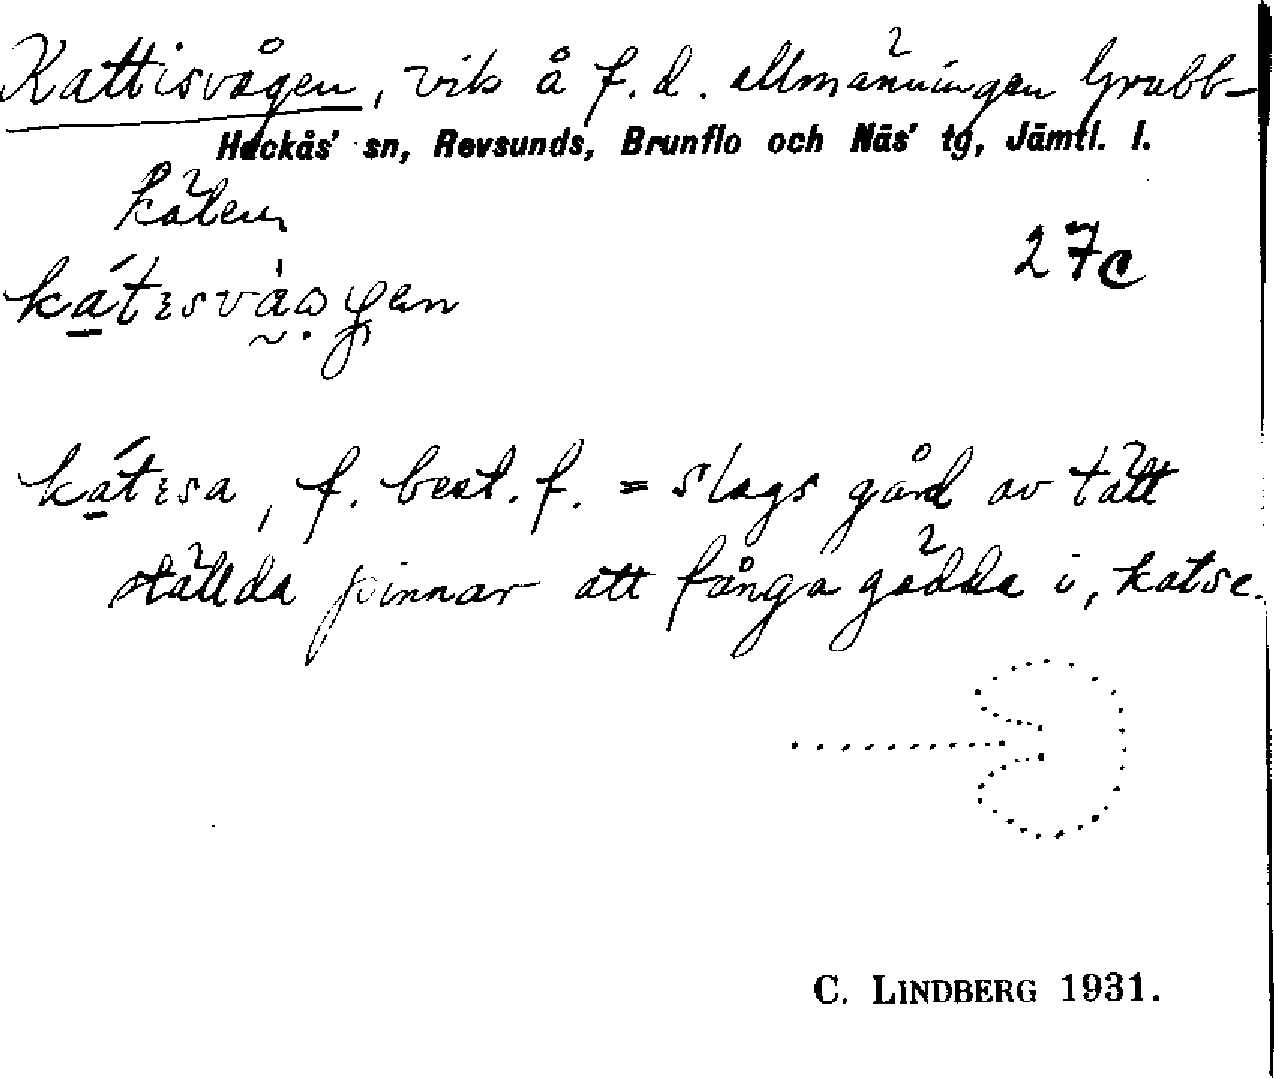 Kattisvågen, vik å f.d. allmänningen Grubb-
Hackås' sn, Revsunds, Brunflo och Näs' tg, Jämtl. l.
kälen
27c
kátısvàꞷgen
kátısa, f. best. f. = slags gård av tätt
ställda pinnar att fånga gädda i, katse.
C. LINDBERG 1931.